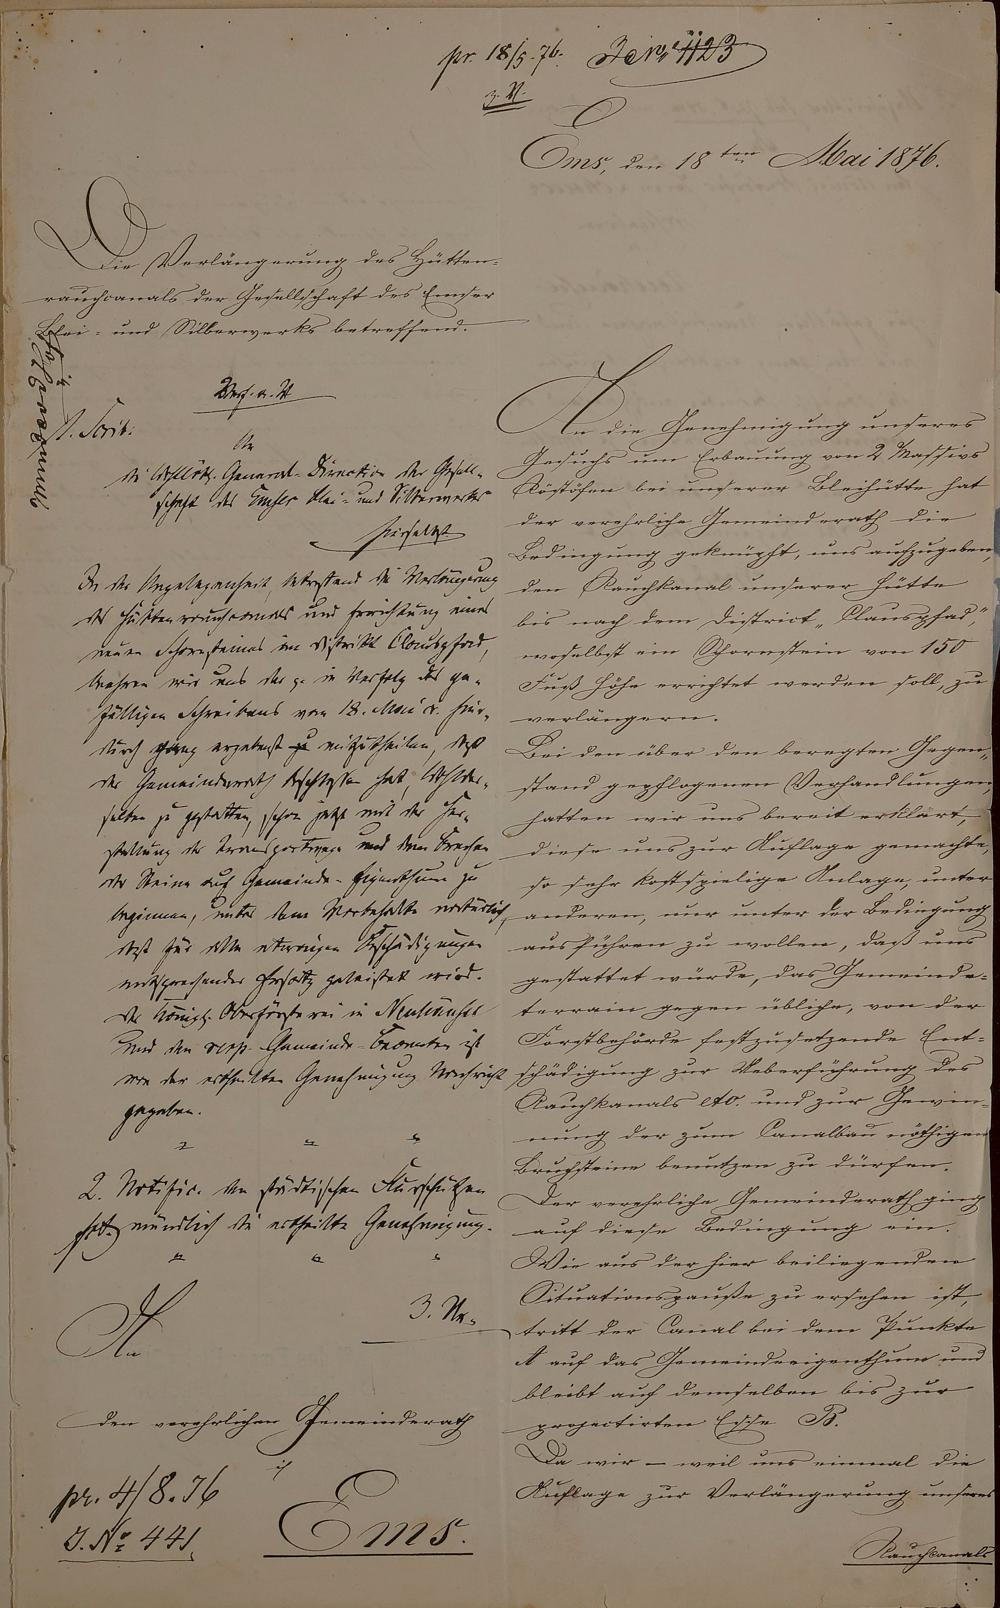 pr. 18/5. 76.
Ems, den 18ten Mai 1876.
Die Verlängerung des Hütten-
rauchcanals der Gesellschaft des Emser
Blei- und Silberwerks betreffend.
1. Scrib:
An
die General-Direction der Gesell-
schaft des Emser Blei- und Silberwerks
hierselbst
In der Angelegenheit, betreffend die Verlängerung
des Hüttenrauchcanals und Errichtung eines
neuen Schornsteines im Distrikt Clauspfad,
beehren wir uns der p. in Verfolg des ge-
fälligen Schreibens vom 18. Mai c. hier-
durch ganz ergebenst mitzutheilen, daß
der Gemeinderath beschlossen hat, Wohlder-
selben zu gestatten, schon jetzt mit der Her-
stellung der Transportwege und dem Brechen
der Steine auf Gemeinde-Eigenthum zu
beginnen, unter dem Vorbehalte natürlich,
daß für alle etwaigen Beschädigungen
entsprechender Ersatz geleistet wird.
Der Königl. Oberförsterei in Neuhäusel
und den resp. Gemeinde-Beamten ist
von der ertheilten Genehmigung Nachricht
gegeben.
2. Notific. den städtischen Flurschützen
mündlich die ertheilte Genehmigung.
3.
An
den verehrlichen Gemeinderath
Ems.
pr. 4/8. 76
J. No 441.
An die Genehmigung unseres
Gesuchs um Erbauung von 2 Massivs
Röstöfen bei unserer Bleihütte hat
der verehrliche Gemeinderath die
Bedingung geknüpft, uns aufzugeben,
den Rauchkanal unserer Hütte
bis nach dem District „Clauspfad,"
woselbst ein Schornstein von 150
Fuß Höhe errichtet werden soll, zu
verlängern.
Bei den über den beregten Gegen-
stand gepflogenen Verhandlungen,
hatten wir uns bereit erklärt,
diese uns zur Auflage gemachte,
so sehr kostspielige Anlage, unter
anderen, nur unter der Bedingung
ausführen zu wollen, daß uns
gestattet würde, das Gemeinde-
terrain gegen übliche, von der
Forstbehörde festzusetzende Ent-
schädigung zur Ueberführung des
Rauchkanals etc. und zur Gewin-
nung der zum Canalbau nöthigen
Bruchsteine benutzen zu dürfen.
Der verehrliche Gemeinderath ging
auf diese Bedingung ein.
Wie aus der hier beiliegenden
Situationspauße zu ersehen ist,
tritt der Canal bei dem Punkte
A auf das Gemeindeeigenthum und
bleibt auf demselben bis zur
projectirten Esse B.
Da wir – weil uns einmal die
Auflage zur Verlängerung unseres
Rauchcanals